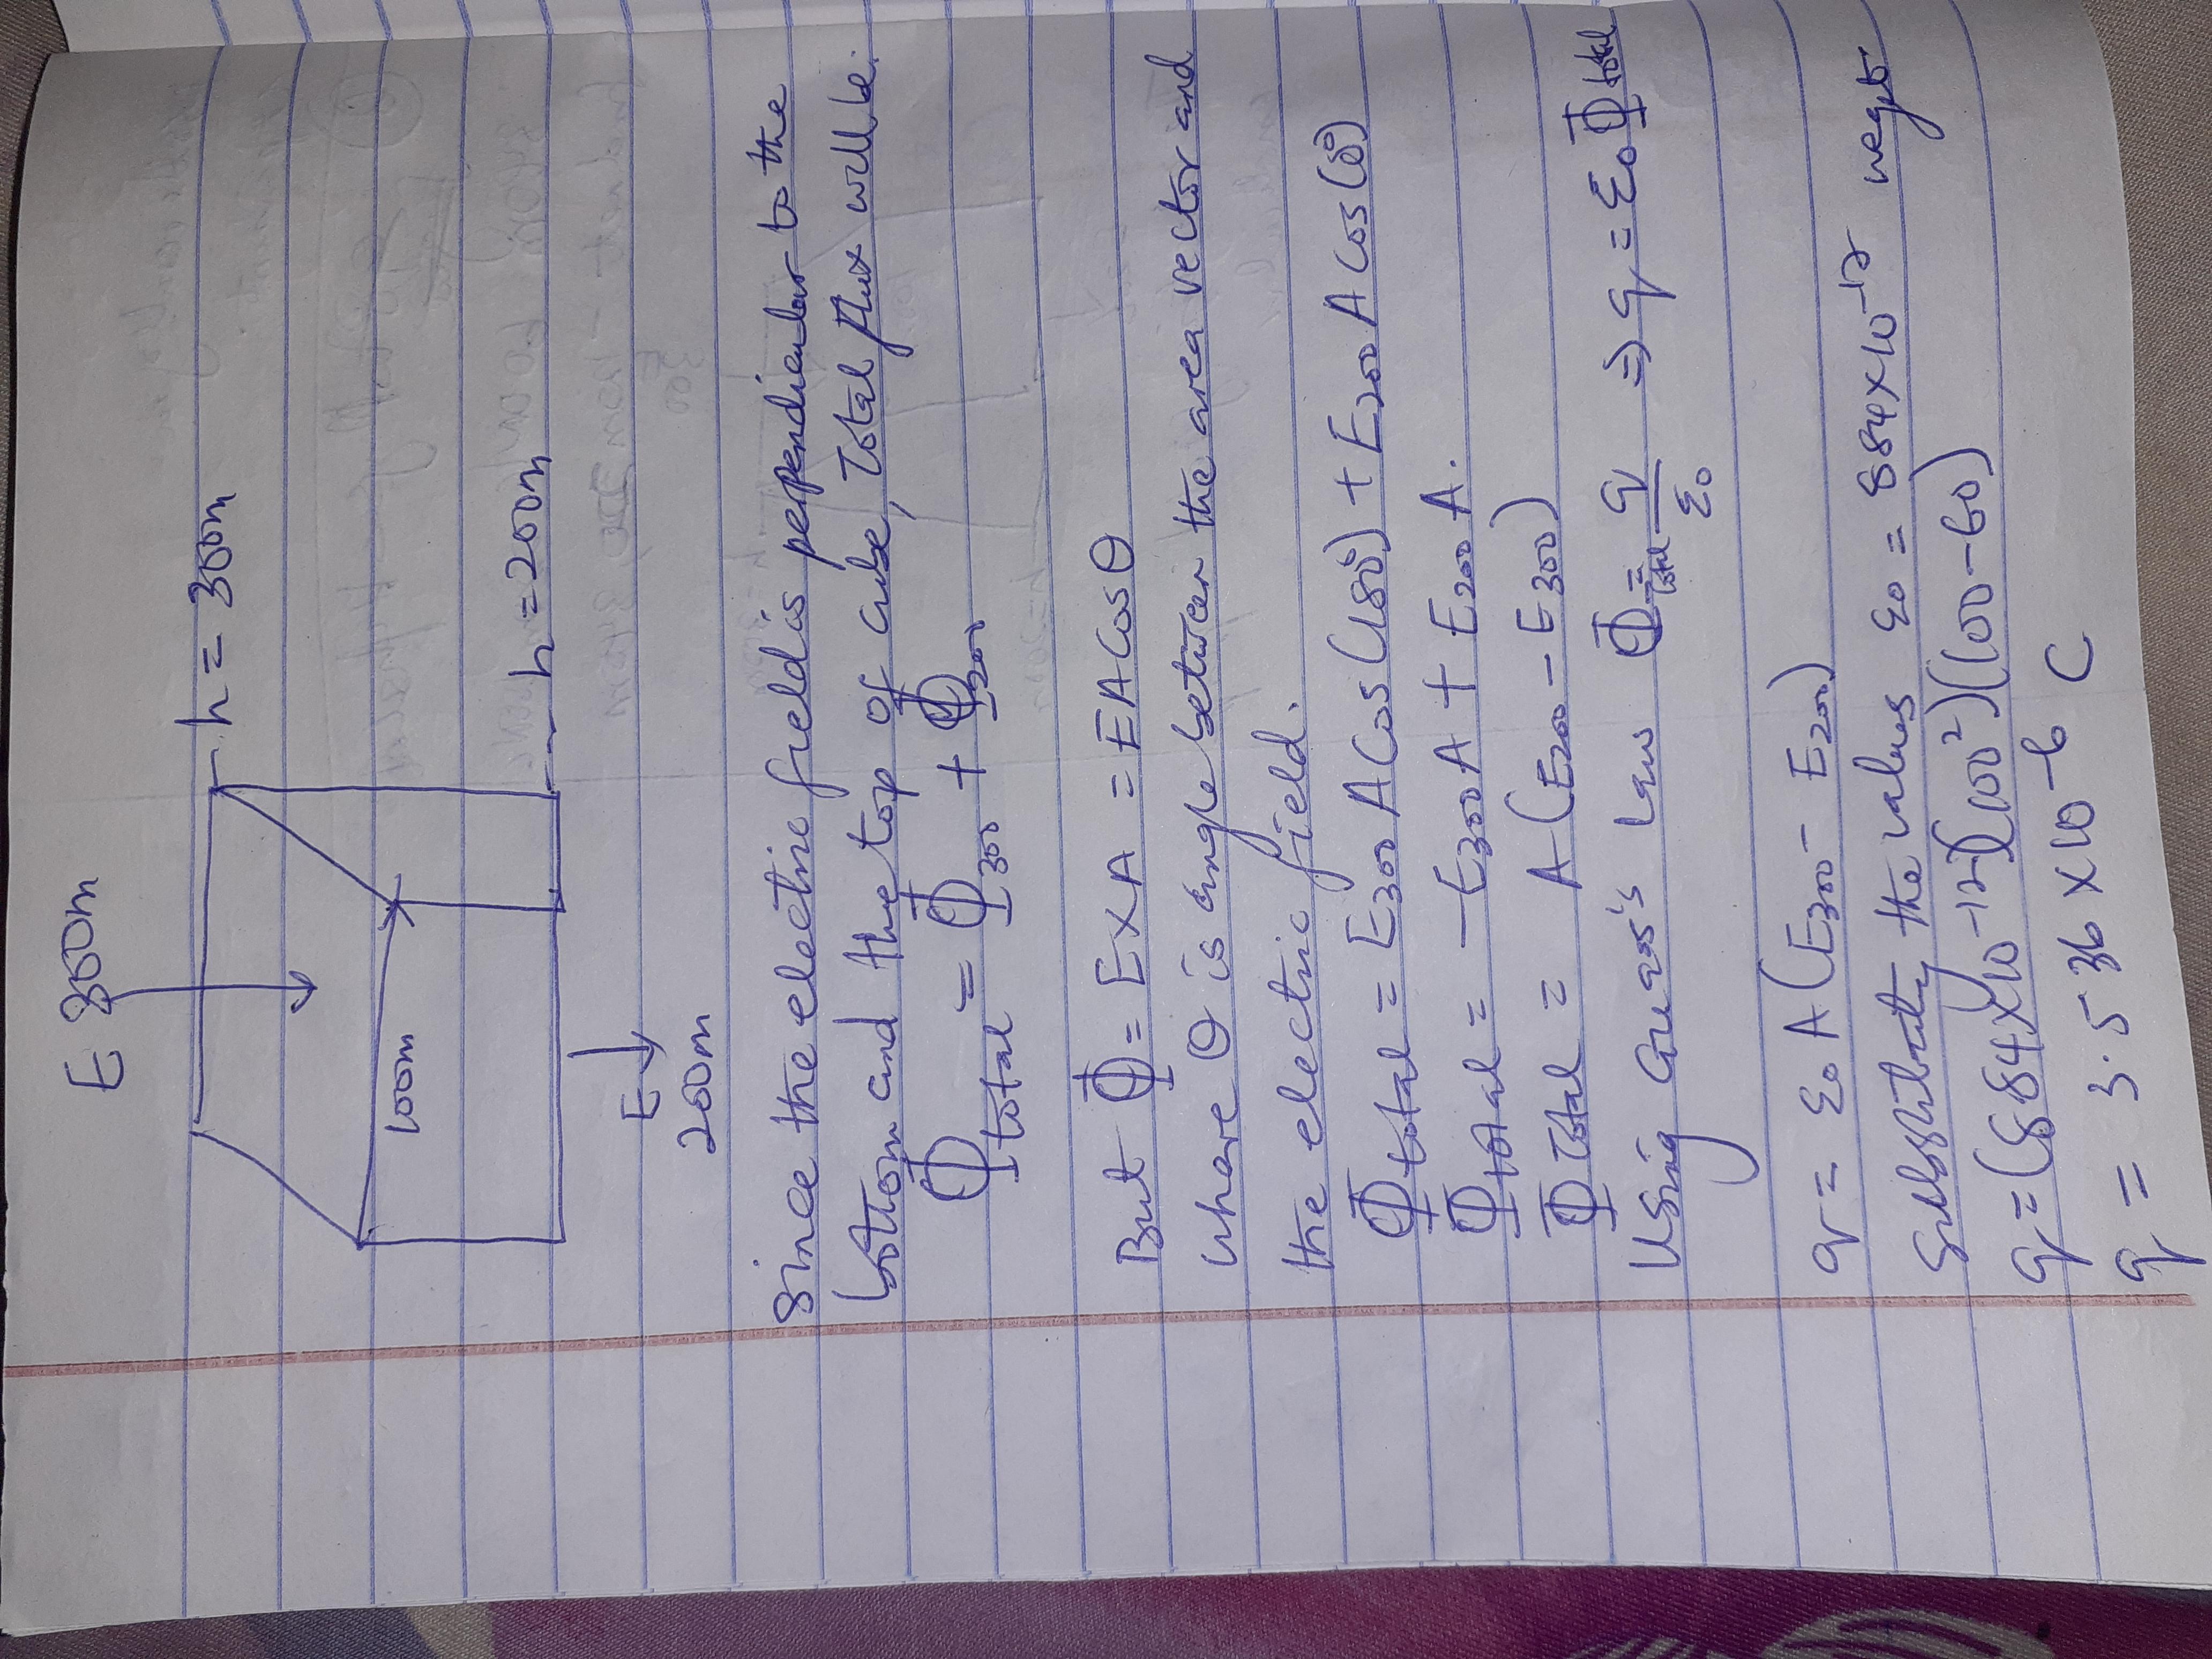 E 300m
h = 300m
100m
h = 200m
E ↓
200m
Since the electric field is perpendicular to the
bottom and the top of cube, Total flux will be.
Φ total = Φ 300 + Φ 200
But Φ = E x A = EA Cos θ
where θ is angle between the area vector and
the electric field.
Φ total = E300 A Cos(180°) + E200 A Cos(0°)
Φ total = -E300 A + E200 A.
Φ Total = A (E200 - E300)
Using Guass's law Φ total = q/ε0 => q = ε0 Φ total
q = ε0 A (E300 - E200)
Substituting the values ε0 = 884x10^-12
q = (884x10^-12)(100^2)(100-60)
q = 3.536 x 10^-6 C